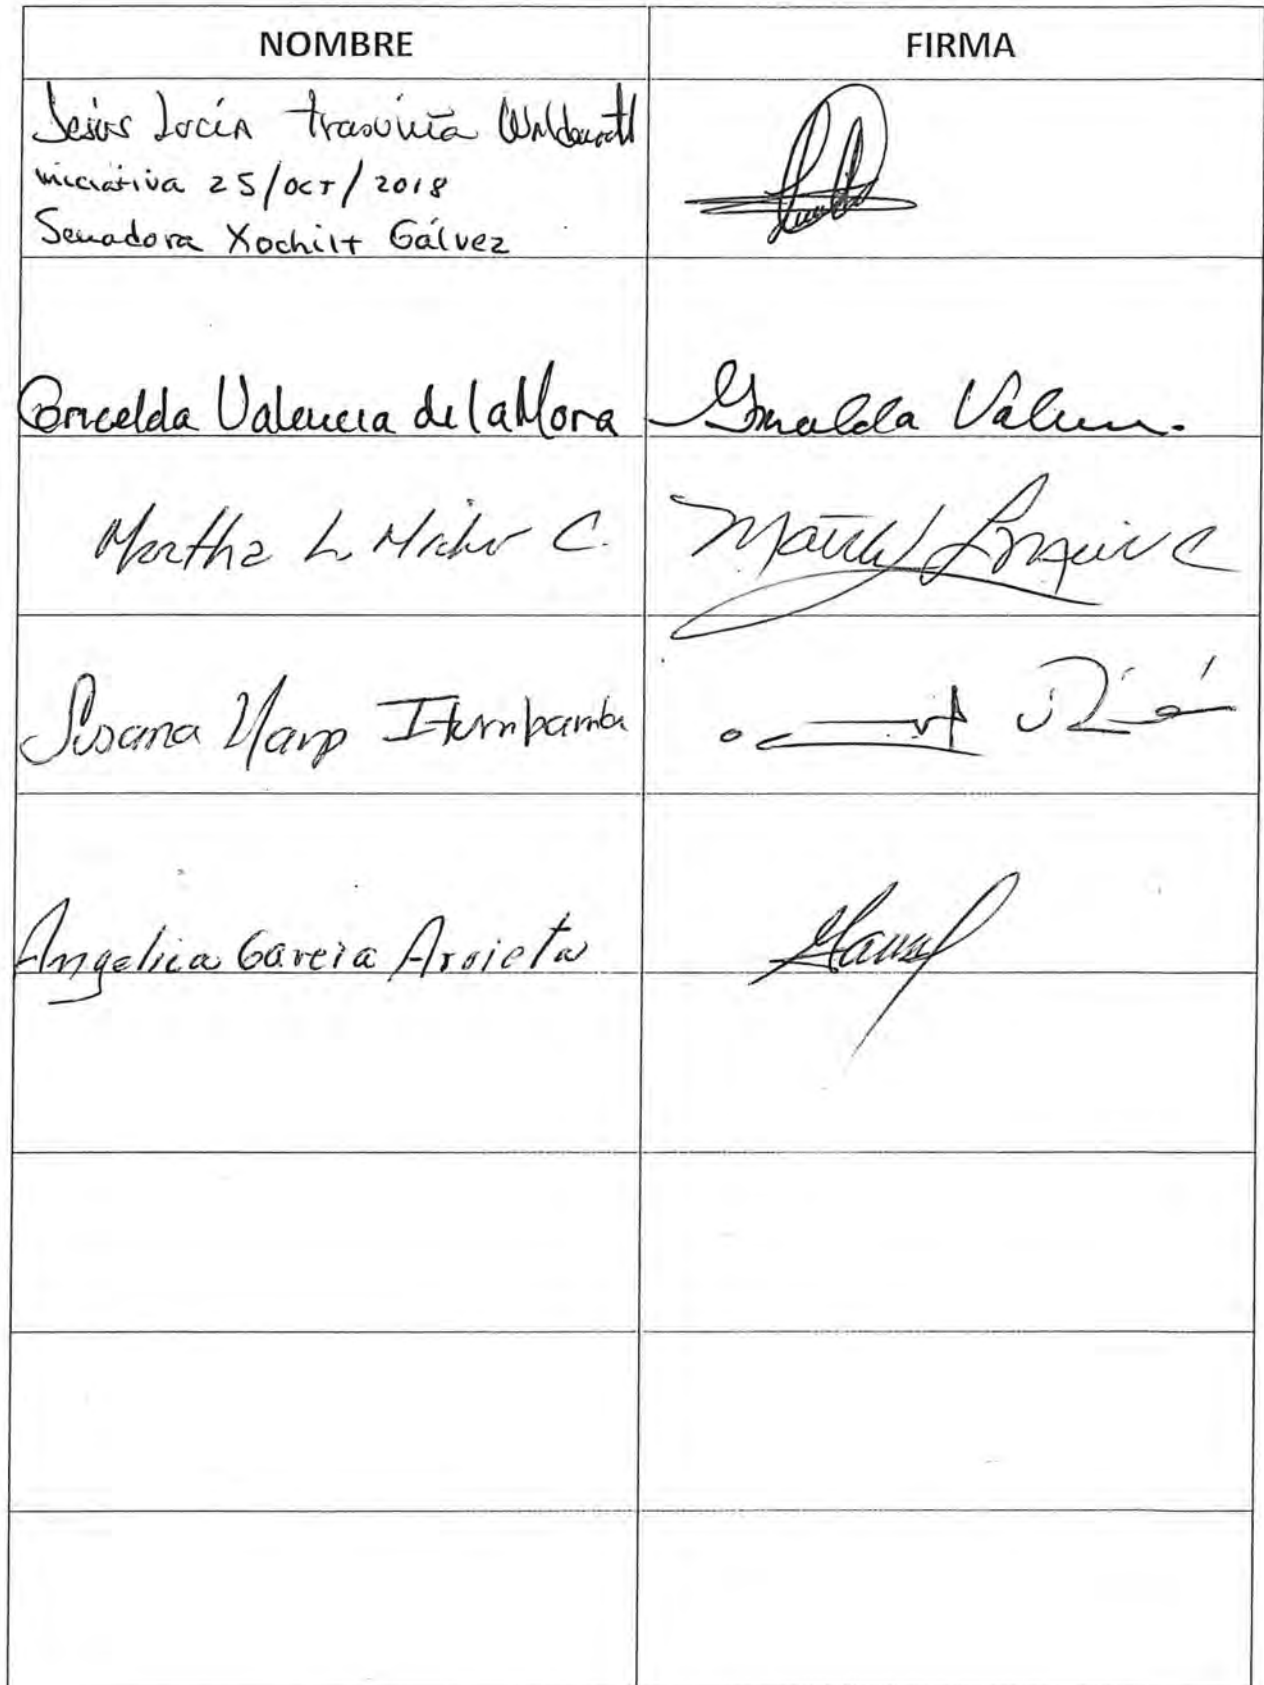 NOMBRE FIRMA
Jesús Lucía Trasviña Waldenrath
iniciativa 25/OCT/2018
Senadora Xochilt Gálvez
Gricelda Valencia de la Mora
Martha L. Micher C.
Susana Harp Iturribarría
Angelica García Arrieta